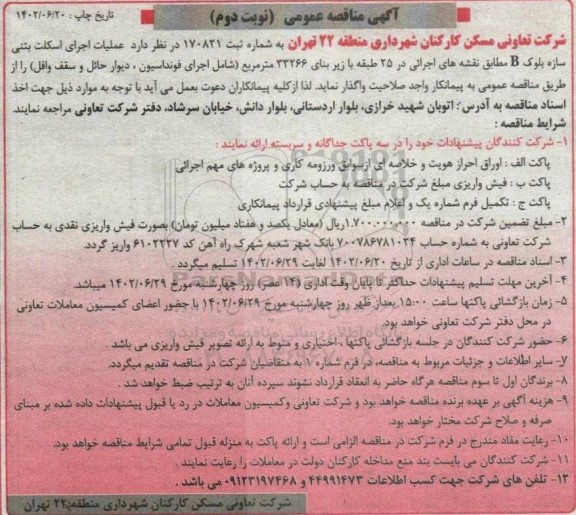 آگهی مناقصه عمومی (نوبت دوم)
تاریخ چاپ : ۱۴۰۲/۰۶/۲۰
شرکت تعاونی مسکن کارکنان شهرداری منطقه ۲۲ تهران به شماره ثبت ۱۷۰۸۲۱ در نظر دارد عملیات اجرای اسکلت بتنی
سازه بلوک B مطابق نقشه های اجرائی در ۲۵ طبقه با زیر بنای ۳۳۲۶۶ مترمربع (شامل اجرای فونداسیون ، دیوار حائل و سقف وافل) را از
طریق مناقصه عمومی به پیمانکار واجد صلاحیت واگذار نماید. لذا ازکلیه پیمانکاران دعوت بعمل می آید با توجه به موارد ذیل جهت اخذ
اسناد مناقصه به آدرس: اتوبان شهید خرازی، بلوار اردستانی، بلوار دانش، خیابان سرشاد، دفتر شرکت تعاونی مراجعه نمایند.
شرایط مناقصه :
۱- شرکت کنندگان پیشنهادات خود را در سه پاکت جداگانه و سربسته ارائه نمایند :
پاکت الف : اوراق احراز هویت و خلاصه ای ازسوابق ورزومه کاری و پروژه های مهم اجرائی
پاکت ب : فیش واریزی مبلغ شرکت در مناقصه به حساب شرکت
پاکت ج : تکمیل فرم شماره یک و اعلام مبلغ پیشنهادی قرارداد پیمانکاری
۲- مبلغ تضمین شرکت در مناقصه ۱.۷۰۰.۰۰۰.۰۰۰ریال (معادل یکصد و هفتاد میلیون تومان) بصورت فیش واریزی نقدی به حساب
شرکت تعاونی به شماره حساب ۷۰۰۷۸۶۷۸۱۰۲۴ بانک شهر شعبه شهرک راه آهن کد ۶۱۰۲۲۲۷ واریز گردد.
۳- اسناد مناقصه در ساعات اداری از تاریخ ۱۴۰۲/۰۶/۲۰ لغایت ۱۴۰۲/۰۶/۲۹ تسلیم میگردد .
۴- آخرین مهلت تسلیم پیشنهادات حداکثر تا پایان وقت اداری (۱۴ عصر) روز چهارشنبه مورخ ۱۴۰۲/۰۶/۲۹ میباشد.
۵- زمان بازگشائی پاکتها ساعت ۱۵:۰۰ بعداز ظهر روز چهارشنبه مورخ ۱۴۰۲/۰۶/۲۹ با حضور اعضای کمیسیون معاملات تعاونی
در محل دفتر شرکت تعاونی خواهد بود.
۶- حضور شرکت کنندگان در جلسه بازگشائی پاکتها ، اختیاری و منوط به ارائه تصویر فیش واریزی می باشد .
۷- سایر اطلاعات و جزئیات مربوط به مناقصه، در فرم شماره ۱ به متقاضیان شرکت در مناقصه تقدیم میگردد.
۸- برندگان اول تا سوم مناقصه هرگاه حاضر به انعقاد قرارداد نشوند سپرده آنان به ترتیب ضبط خواهد شد .
۹- هزینه آگهی بر عهده برنده مناقصه خواهد بود و شرکت تعاونی وکمیسیون معاملات در رد یا قبول پیشنهادات داده شده بر مبنای
صرفه و صلاح شرکت مختار خواهد بود.
۱۰- رعایت مفاد مندرج در فرم شرکت در مناقصه الزامی است و ارائه پاکت به منزله قبول تمامی شرایط مناقصه خواهد بود.
۱۱- شرکت کنندگان می بایست بند منع مداخله کارکنان دولت در معاملات را رعایت نمایند .
۱۲- تلفن های شرکت جهت کسب اطلاعات ۴۴۹۹۱۴۷۳ و ۰۹۱۲۳۱۹۷۴۶۸ می باشد .
شرکت تعاونی مسکن کارکنان شهرداری منطقه ۲۲ تهران